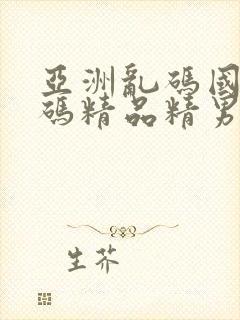 亞洲亂碼國
碼精品精男
生芥